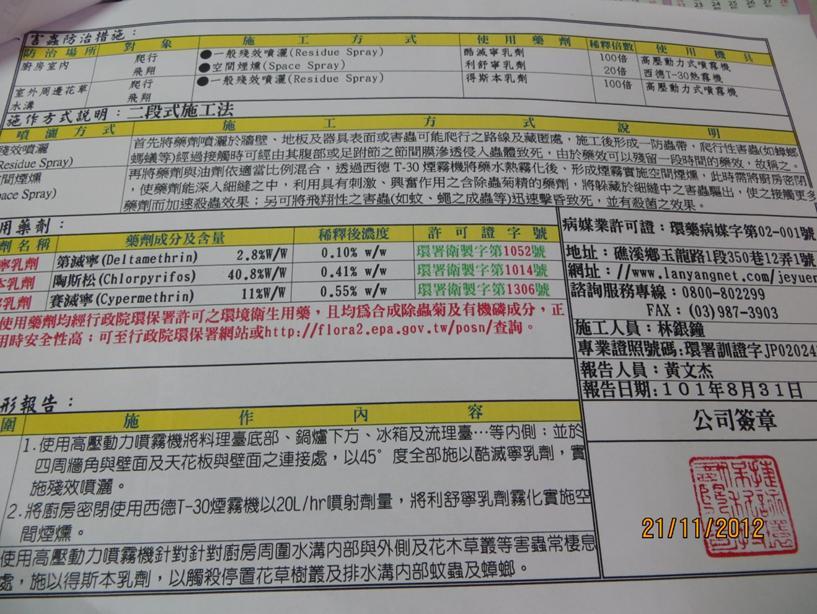 害蟲防治措施：
防治場所 對象 施工方式 使用藥劑 稀釋倍數 使用機具
廚房室內 爬行 ●一般殘效噴灑(Residue Spray) 酷滅寧乳劑 100倍 高壓動力式噴霧機
飛翔 ●空間煙燻(Space Spray) 利舒寧乳劑 20倍 西德T-30熱霧機
室外周邊花草 爬行 ●一般殘效噴灑(Residue Spray) 得斯本乳劑 100倍 高壓動力式噴霧機
水溝 飛翔
施作方式說明：二段式施工法
噴灑方式 施工方式說明
殘效噴灑 首先將藥劑噴灑於牆壁、地板及器具表面或害蟲可能爬行之路線及藏匿處，施工後形成一防蟲帶，爬行性害蟲(如蟑螂
Residue Spray) 螞蟻等)經過接觸時可經由其腹部或足跗節之節間膜滲透侵入蟲體致死，由於藥效可以殘留一段時間的藥效，故稱之。
空間煙燻 再將藥劑與油劑依適當比例混合，透過西德T-30煙霧機將藥水熱霧化後、形成煙霧實施空間煙燻，此時需將廚房密閉
pace Spray) ,使藥劑能深入細縫之中，利用具有刺激、興奮作用之含除蟲菊精的藥劑，將躲藏於細縫中之害蟲驅出，使之接觸更多
藥劑而加速殺蟲效果；另可將飛翔性之害蟲(如蚊、蠅之成蟲等)迅速擊昏致死，並有殺菌之效果。
用藥劑：
劑名稱 藥劑成分及含量 稀釋後濃度 許可證字號
寧乳劑 第滅寧(Deltamethrin) 2.8%W/W 0.10% w/w 環署衛製字第1052號
本乳劑 陶斯松(Chlorpyrifos) 40.8%W/W 0.41% w/w 環署衛製字第1014號
乳劑 賽滅寧(Cypermethrin) 11%W/W 0.55% w/w 環署衛製字第1306號
使用藥劑均經行政院環保署許可之環境衛生用藥，且均為合成除蟲菊及有機磷成分，正
用時安全性高；可至行政院環保署網站或http://flora2.epa.gov.tw/posn/查詢。
病媒業許可證：環藥病媒字第02-001號
地址：礁溪鄉玉龍路1段350巷12弄1號
網址：//www.lanyangnet.com/jeyuer
諮詢服務專線：0800-802299
FAX：(03)987-3903
施工人員：林銀鐘
專業證照號碼:環署訓證字JP02024
報告人員：黃文杰
報告日期:１０１年８月３１日
公司簽章
形報告：
圍 施作內容
1.使用高壓動力噴霧機將料理臺底部、鍋爐下方、冰箱及流理臺…等內側；並於
四周牆角與壁面及天花板與壁面之連接處，以45°度全部施以酷滅寧乳劑，實
施殘效噴灑。
2.將廚房密閉使用西德T-30煙霧機以20L/hr噴射劑量，將利舒寧乳劑霧化實施空
間煙燻。
使用高壓動力噴霧機針對針對廚房周圍水溝內部與外側及花木草叢等害蟲常棲息
處，施以得斯本乳劑，以觸殺停置花草樹叢及排水溝內部蚊蟲及蟑螂。
21/11/2012